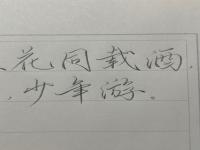 花同载酒,
,少年游.